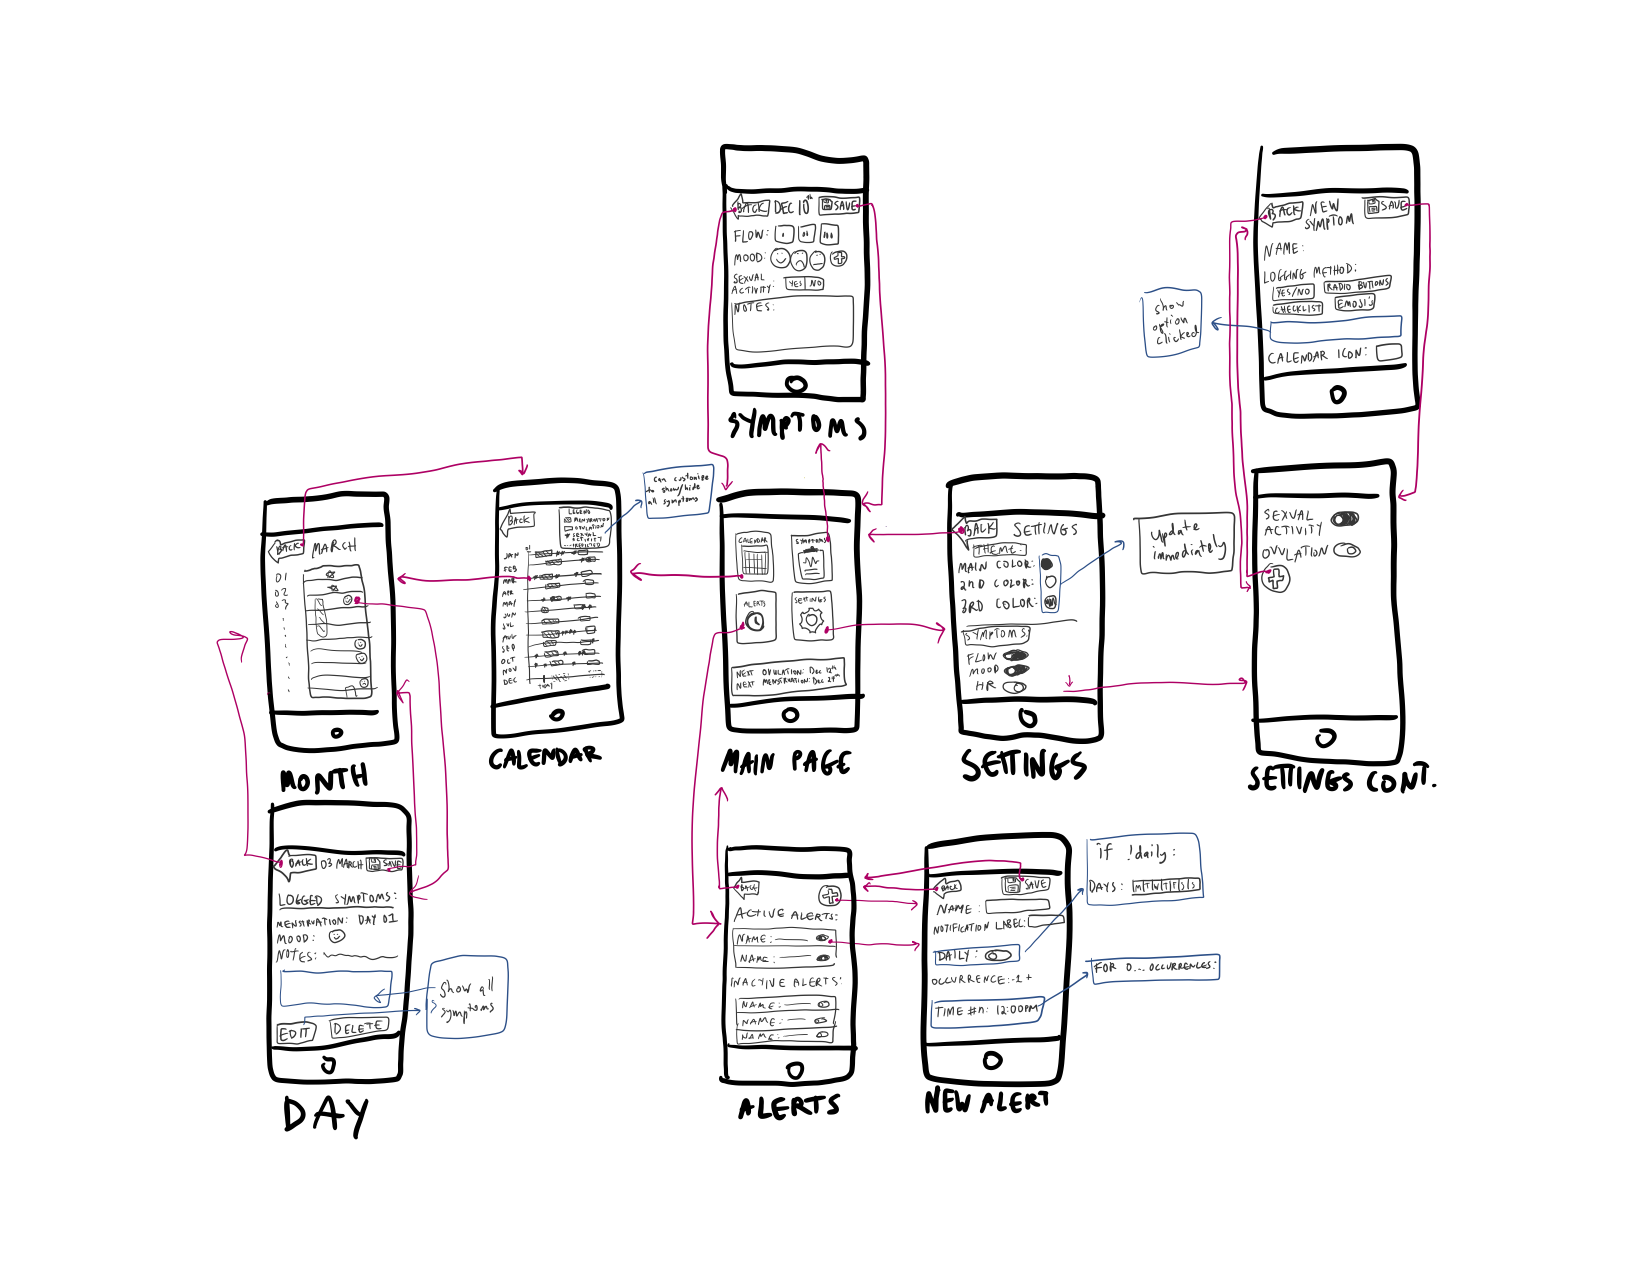 BACK DEC 10th SAVE
FLOW:
MOOD:
SEXUAL
ACTIVITY: YES NO
NOTES:
SYMPTOMS
BACK NEW SYMPTOM SAVE
NAME:
LOGGING METHOD:
YES/NO RADIO BUTTONS
CHECKLIST EMOJI'S
CALENDAR ICON:
show
option
clicked
BACK MARCH
01
02
03
MONTH
BACK
LEGEND
MENSTRUATION
OVULATION
SEXUAL
ACTIVITY
PREDICTED
01
JAN
FEB
MAR
APR
MAY
JUN
JUL
AUG
SEP
OCT
NOV
DEC
TODAY
CALENDAR
Can customize
to show/hide
all symptoms
CALENDAR SYMPTOMS
ALERTS SETTINGS
NEXT OVULATION: Dec 12th
NEXT MENSTRUATION: Dec 29th
MAIN PAGE
BACK SETTINGS
THEME:
MAIN COLOR:
2ND COLOR:
3RD COLOR:
SYMPTOMS
FLOW
MOOD
HR
SETTINGS
update
immediately
SEXUAL
ACTIVITY
OVULATION
SETTINGS CONT.
BACK 03 MARCH SAVE
LOGGED SYMPTOMS:
MENSTRUATION: DAY 01
MOOD:
NOTES:
EDIT DELETE
DAY
Show all
symptoms
BACK
ACTIVE ALERTS:
NAME:
NAME:
INACTIVE ALERTS:
NAME:
NAME:
NAME:
ALERTS
BACK SAVE
NAME:
NOTIFICATION LABEL:
DAILY:
OCCURRENCE: -1 +
TIME #n: 12:00PM
NEW ALERT
if !daily:
DAYS: M T W T F S S
FOR 0... OCCURRENCES: